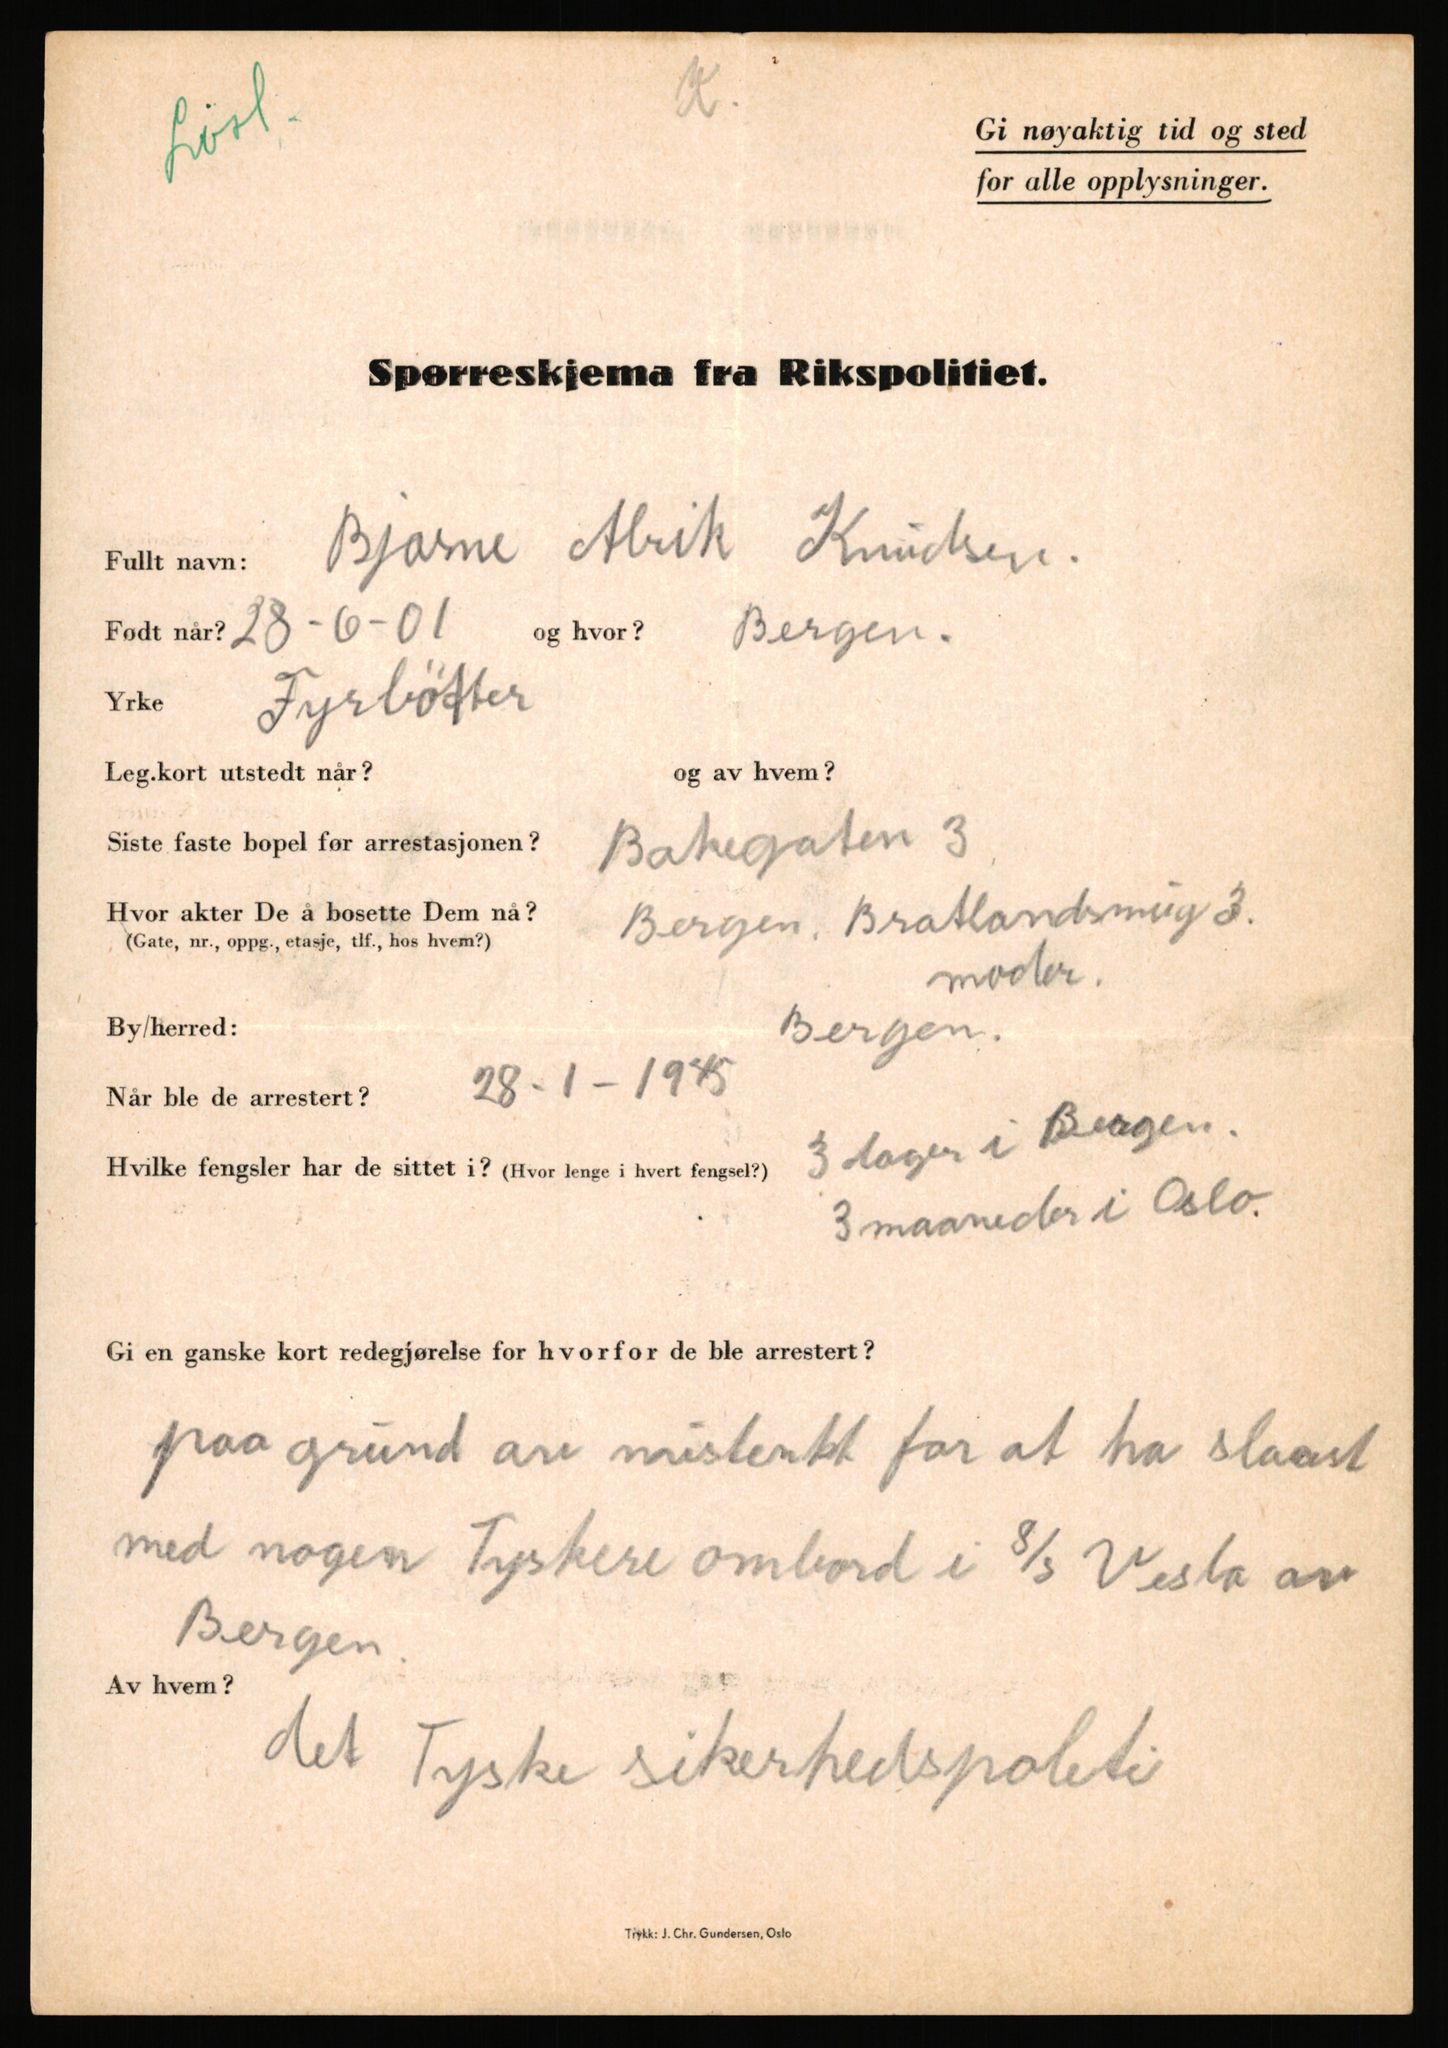 Løsl.
K.
Gi nøyaktig tid og sted
for alle opplysninger.
Spørreskjema fra Rikspolitiet.
Fullt navn: Bjarne Alrik Knudsen.
Født når? 28-6-01 og hvor? Bergen.
Yrke Fyrbötter
Leg.kort utstedt når? og av hvem?
Siste faste bopel før arrestasjonen? Bakegaten 3
Hvor akter De å bosette Dem nå? Bergen. Bratlandsmug 3.
(Gate, nr., oppg., etasje, tlf., hos hvem?) moder.
By/herred: Bergen.
Når ble de arrestert? 28-1-1945
Hvilke fengsler har de sittet i? (Hvor lenge i hvert fengsel?) 3 dager i Bergen.
3 maaneder i Oslo.
Gi en ganske kort redegjørelse for hvorfor de ble arrestert?
paa grund av mistenkt for at ha slaast
med nogen Tyskere ombord i S/S Vesla av
Bergen.
Av hvem?
det Tyske sikerhedspoleti
Trykk: J. Chr. Gundersen, Oslo